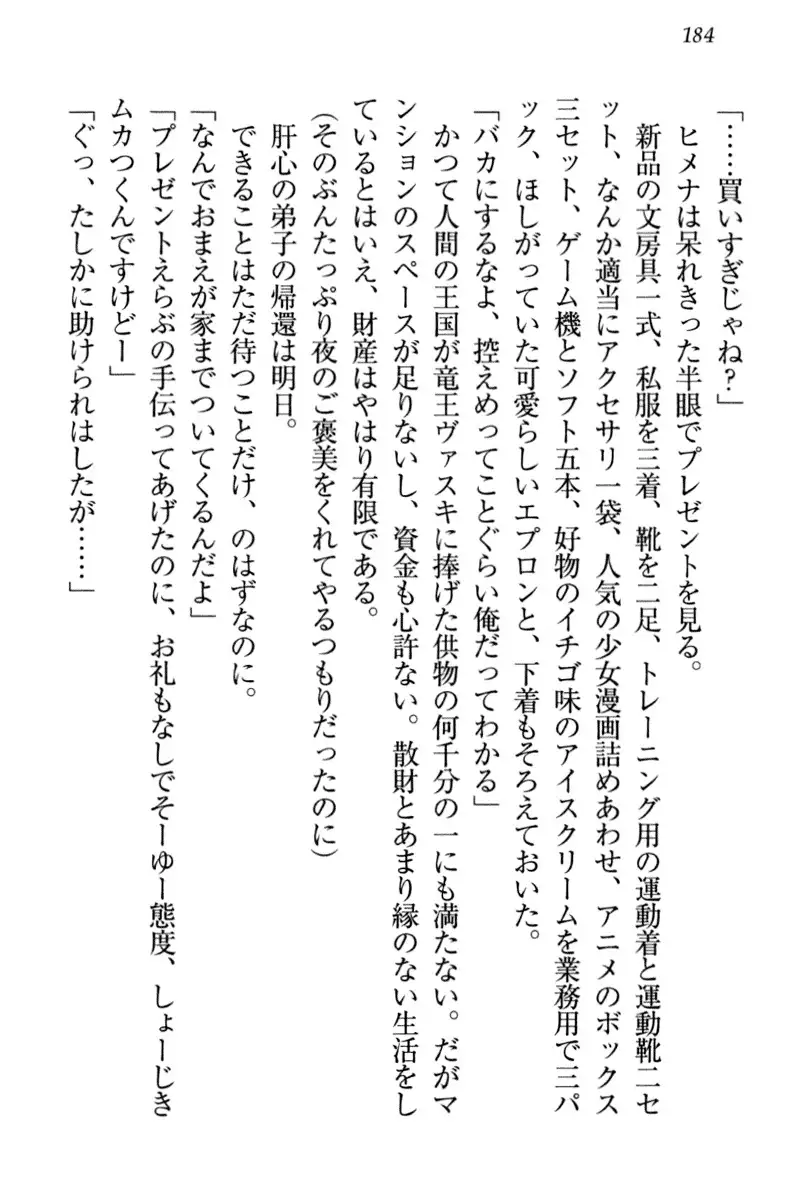 184
「……買いすぎじゃね？」
ヒメナは呆れきった半眼でプレゼントを見る。
新品の文房具一式、私服を三着、靴を二足、トレーニング用の運動着と運動靴二セ
ット、なんか適当にアクセサリ一袋、人気の少女漫画詰めあわせ、アニメのボックス
三セット、ゲーム機とソフト五本、好物のイチゴ味のアイスクリームを業務用で三パ
ック、ほしがっていた可愛らしいエプロンと、下着もそろえておいた。
「バカにするなよ、控えめってことぐらい俺だってわかる」
かつて人間の王国が竜王ヴァスキに捧げた供物の何千分の一にも満たない。だがマ
ンションのスペースが足りないし、資金も心許ない。散財とあまり縁のない生活をし
ているとはいえ、財産はやはり有限である。
（そのぶんたっぷり夜のご褒美をくれてやるつもりだったのに）
肝心の弟子の帰還は明日。
できることはただ待つことだけ、のはずなのに。
「なんでおまえが家までついてくるんだよ」
「プレゼントえらぶの手伝ってあげたのに、お礼もなしでそーゆー態度、しょーじき
ムカつくんですけどー」
「ぐっ、たしかに助けられはしたが……」